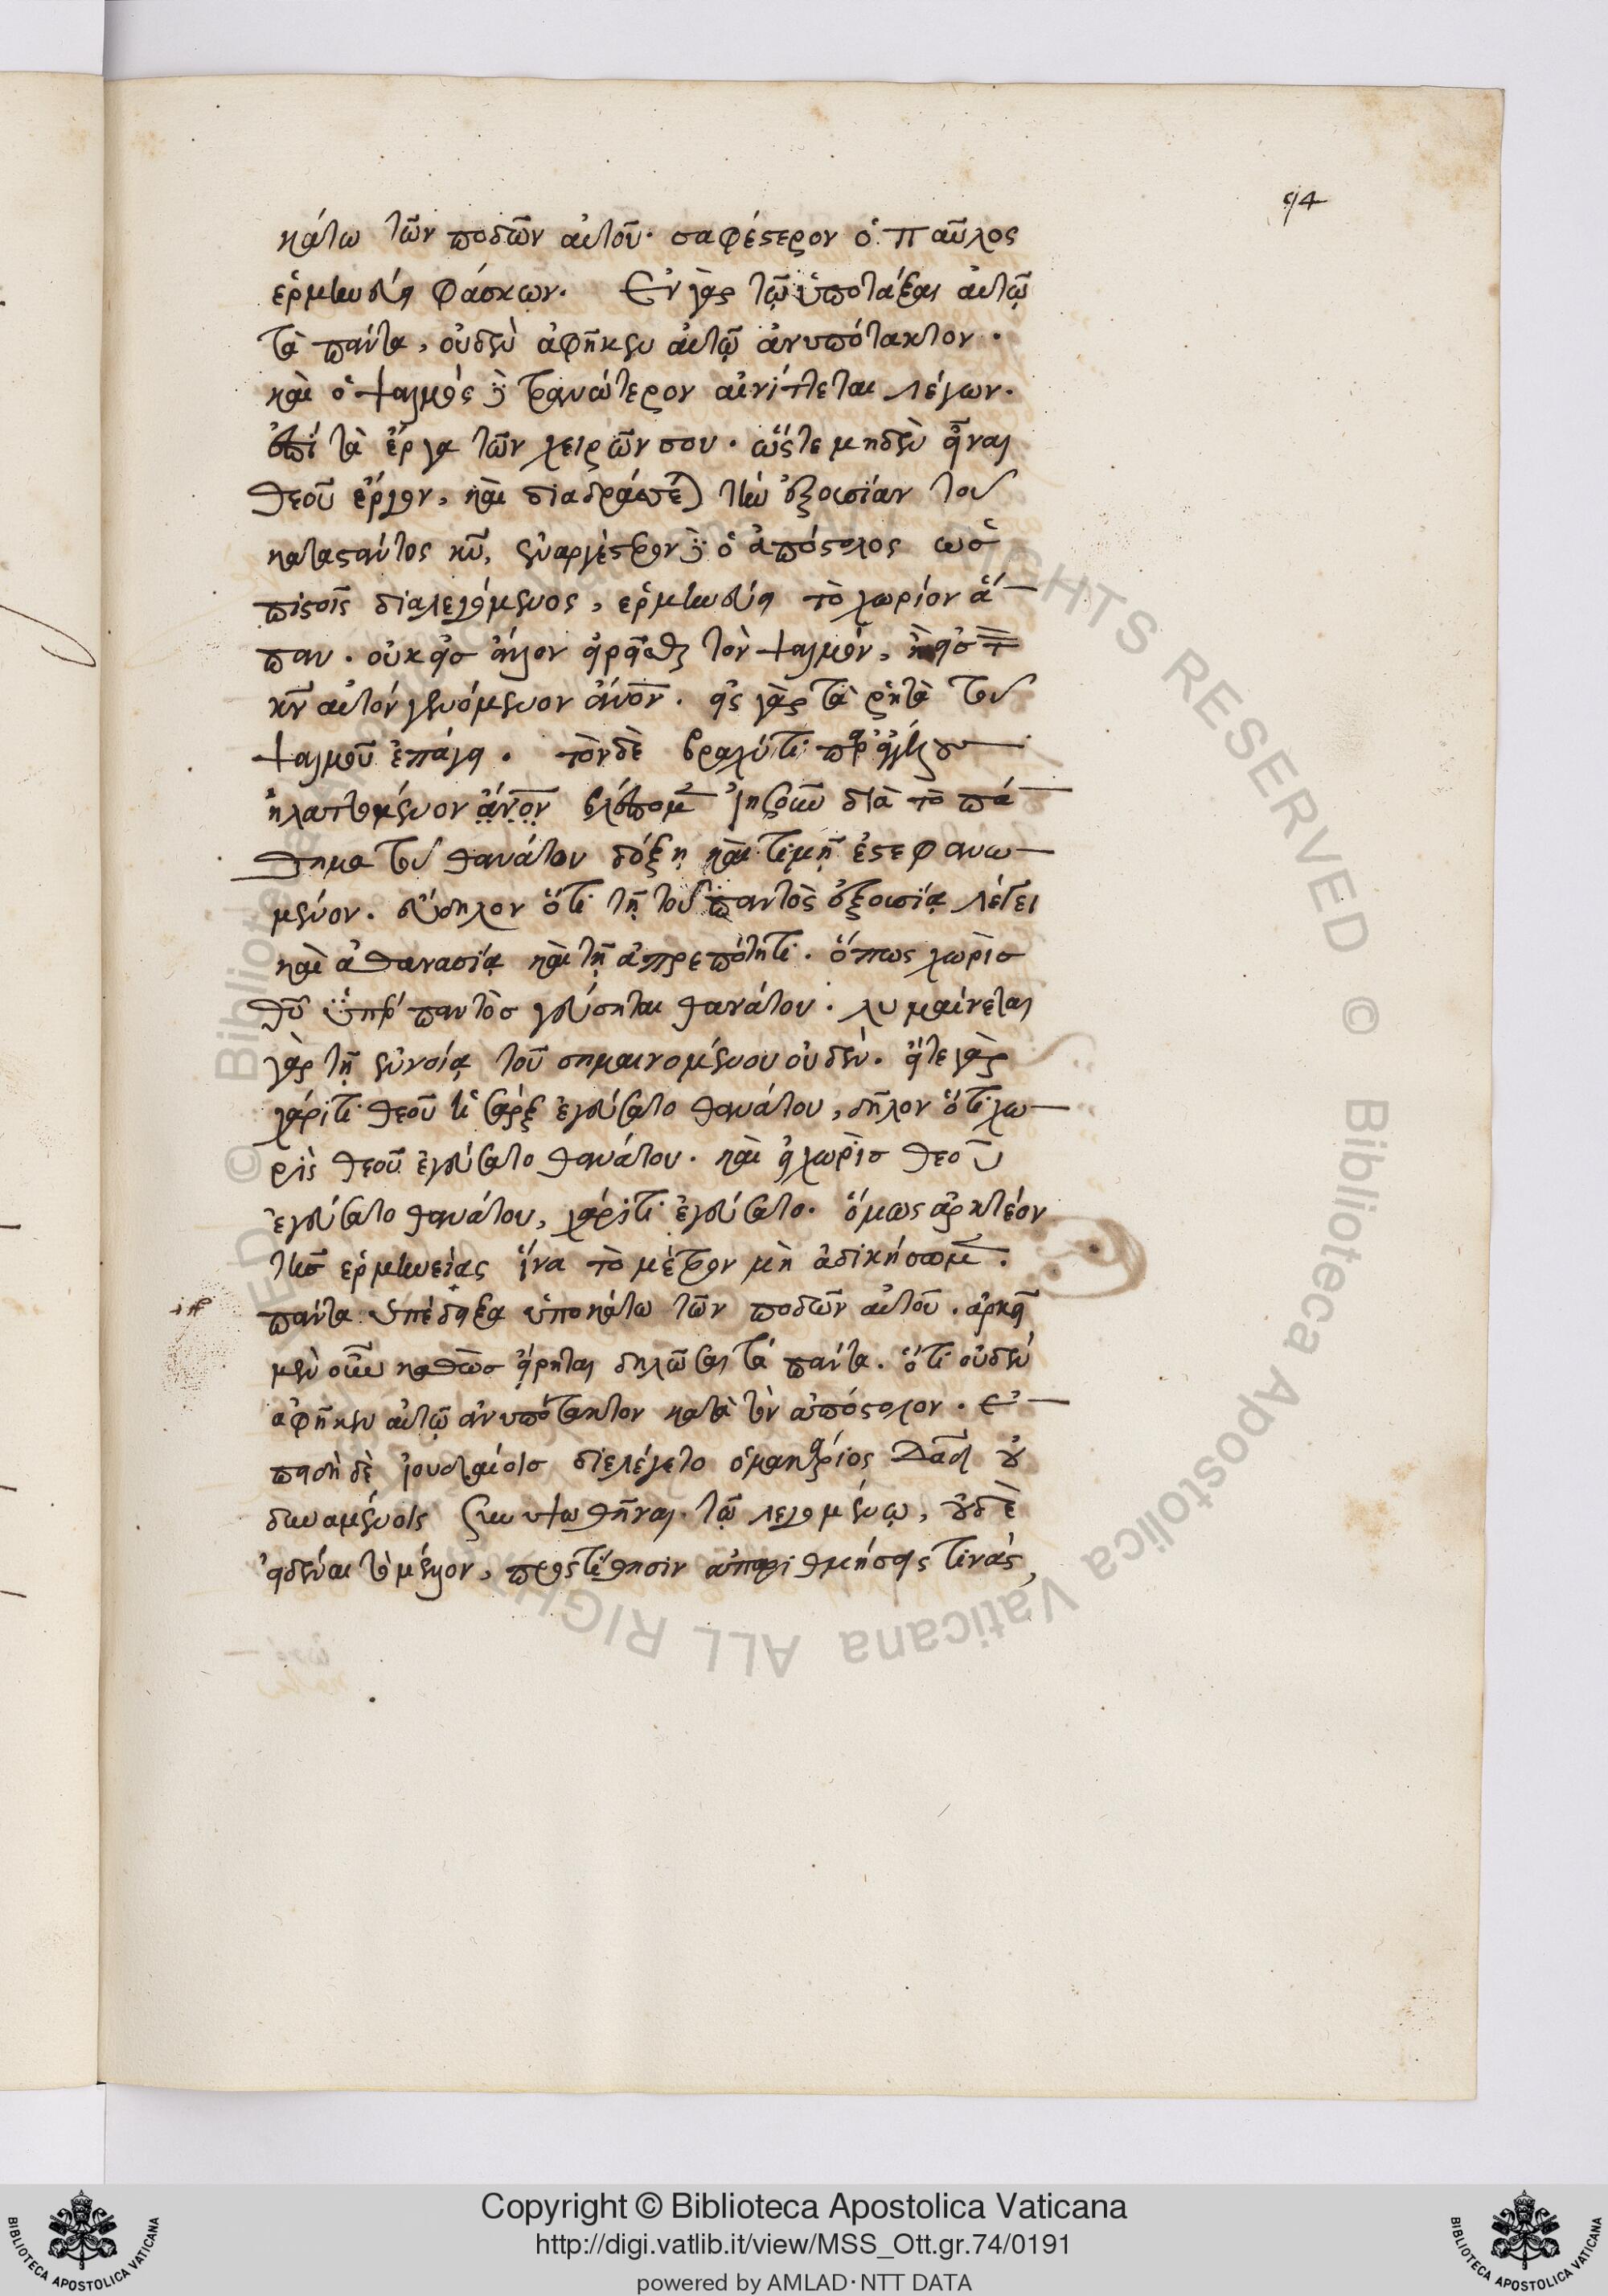 94
κάτω τῶν ποδῶν αὐτοῦ· σαφέστερον ὁ παῦλος
ἑρμηνεύει φάσκων. Ἐν γὰρ τῷ ὑποτάξαι αὐτῷ
τὰ πάντα, οὐδὲν ἀφῆκεν αὐτῷ ἀνυπότακτον.
καὶ ὁ ψαλμὸς φανώτερον αἰνίττεται λέγων.
ἐπὶ τὰ ἔργα τῶν χειρῶν σου. ὥστε μηδὲν εἶναι
θεοῦ ἔργον, καὶ τὴν ἐξουσίαν τοῦ
κατασταντος κυ, ὁ ἀπόστολος ὡς
πιστοῖς διαλεγόμενος, ἑρμηνεύει τὸ χωρίον ἅ
παν. οὐκ εἰς τὸν ψαλμὸν, εἰς τ
κν αὐτὸν γενόμενον ἄνον. εἰς γὰρ τὰ ῥητὰ τοῦ
ψαλμοῦ ἐπάγει. τὸν δὲ βραχύ τι παρ' ἀγγέλου
ἠλαττωμένον ἄνον βλέπομεν ἰησοῦν διὰ τὸ πά
θημα τοῦ θανάτου δόξῃ καὶ τιμῇ ἐστεφανω
μένον. εὔδηλον ὅτι τῇ τοῦ παντὸς ἐξουσίᾳ λέγει
καὶ ἀθανασίᾳ καὶ τῇ ἀπρεπότητι. ὅπως χωρὶς
θυ ὑπὲρ παντὸς γεύσηται θανάτου. λυμαίνεται
γὰρ τῇ ἐννοίᾳ τοῦ σημαινομένου οὐδέν. εἴτε γὰρ
χάριτι θεοῦ ἡ σὰρξ ἐγεύσατο θανάτου, δῆλον ὅτι χω
ρὶς θεοῦ ἐγεύσατο θανάτου. καὶ εἰ χωρὶς θεοῦ
ἐγεύσατο θανάτου, χάριτι ἐγεύσατο. ὅμως ἀρκτέον
τῆς ἑρμηνείας ἵνα τὸ μέτρον μὴ ἀδικήσωμεν.
πάντα ὑπέταξα ὑποκάτω τῶν ποδῶν αὐτοῦ. ἀρκεῖ
μὲν οὖν καθὼς εἴρηται δηλῶσαι τὰ πάντα. ὅτι οὐδὲν
ἀφῆκεν αὐτῷ ἀνυπότακτον κατὰ τὸν ἀπόστολον. ἐ
πειδὴ δὲ ἰουδαίοις διελέγετο ὁ μακάριος Δαδ οὐ
δυναμένοις συνυψωθῆναι τῷ λεγομένῳ, οὐδὲ
εἰδέναι τὸ μέλλον, προςτίθησιν ἀπαριθμήσεις τινάς,
Copyright © Biblioteca Apostolica Vaticana
http://digi.vatlib.it/view/MSS_Ott.gr.74/0191
powered by AMLAD·NTT DATA